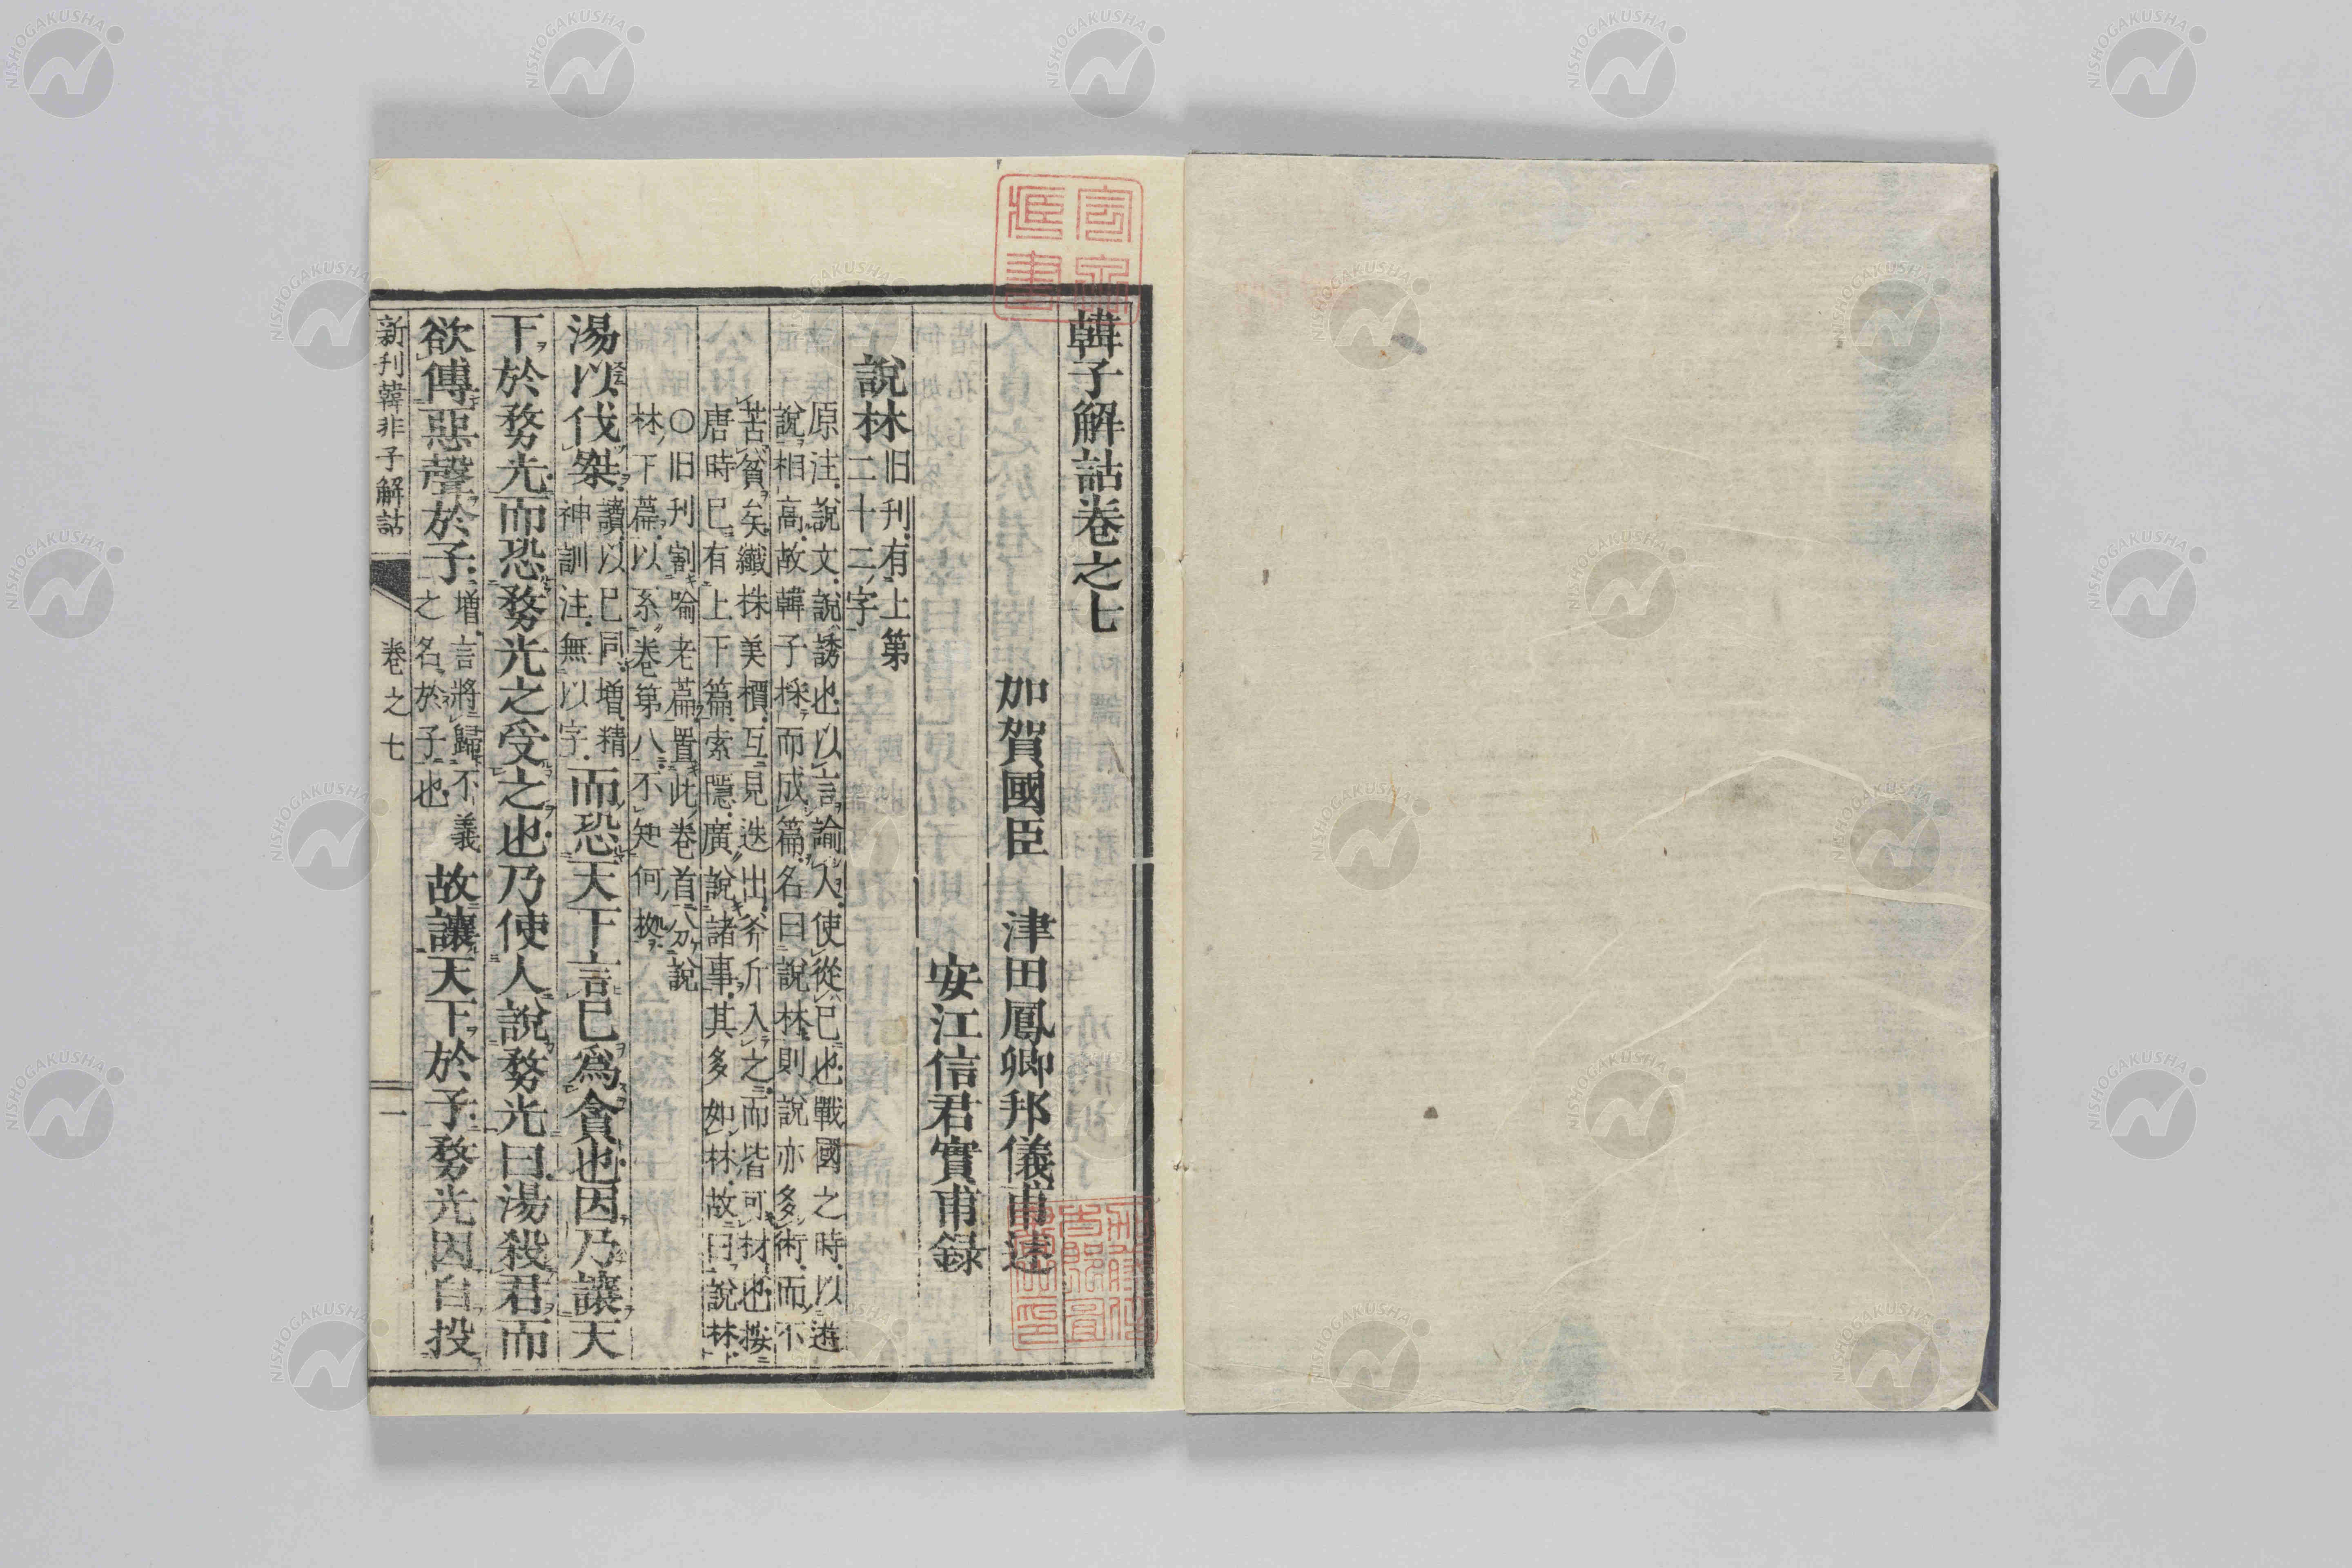 韓子解詁卷之七
加賀國臣 津田鳳卿邦儀甫述
安江信君實甫録
說林 旧刊有上第二十二字
原注說文說誘也以言諭人使從已也戰國之時以遊
說相高故韓子採而成篇名曰說林則說亦多術而不
苦貧矣纎株美檟互見迭出斧斤入之而皆可材也按
唐時已有上下篇索隱廣說諸事其多如林故曰說林
〇旧刊割喻老篇置此卷首分說
林下篇以系卷第八不知何拠
湯以伐桀 讀以已同増精神訓注無以字 而恐天下言已爲貪也因乃讓天
下於務光而恐務光之受之也乃使人說務光曰湯殺君而
欲傅惡聲於子 増言將歸不義之名於子也 故讓天下於子務光因自投
新刊韓非子解詁 卷之七 一
NISHOGAKUSHA